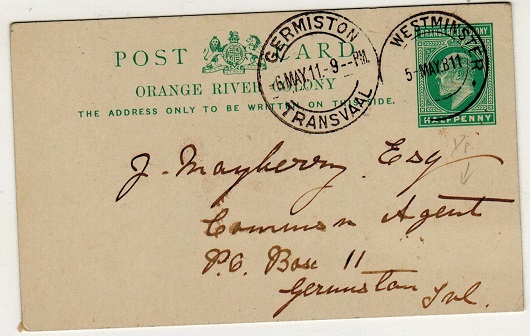 POST CARD
ORANGE RIVER COLONY
THE ADDRESS ONLY TO BE WRITTEN ON THIS SIDE.
GERMISTON
6 MAY.11-9--PM.
TRANSVAAL
WESTMINSTER
5-MAY.811
ORANGE RIVER COLONY
HALFPENNY
J. Mayberry Esq
Commissn Agent
P.O. Box 11
Germiston Tvl.